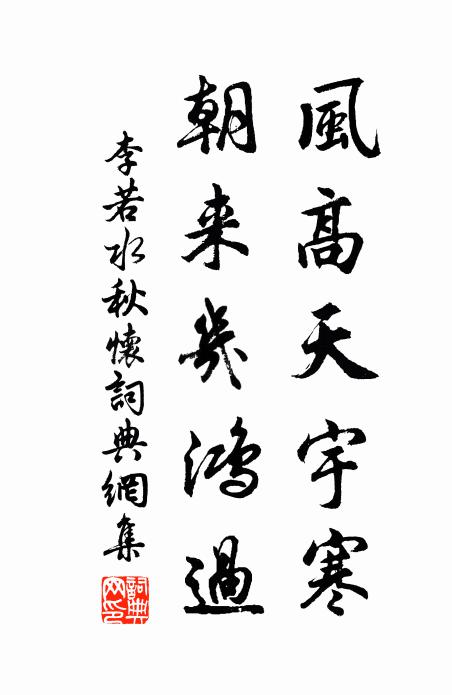 風高天宇寒
朝来幾鴻過
李若水秋懷詞典網集
詞典
网印